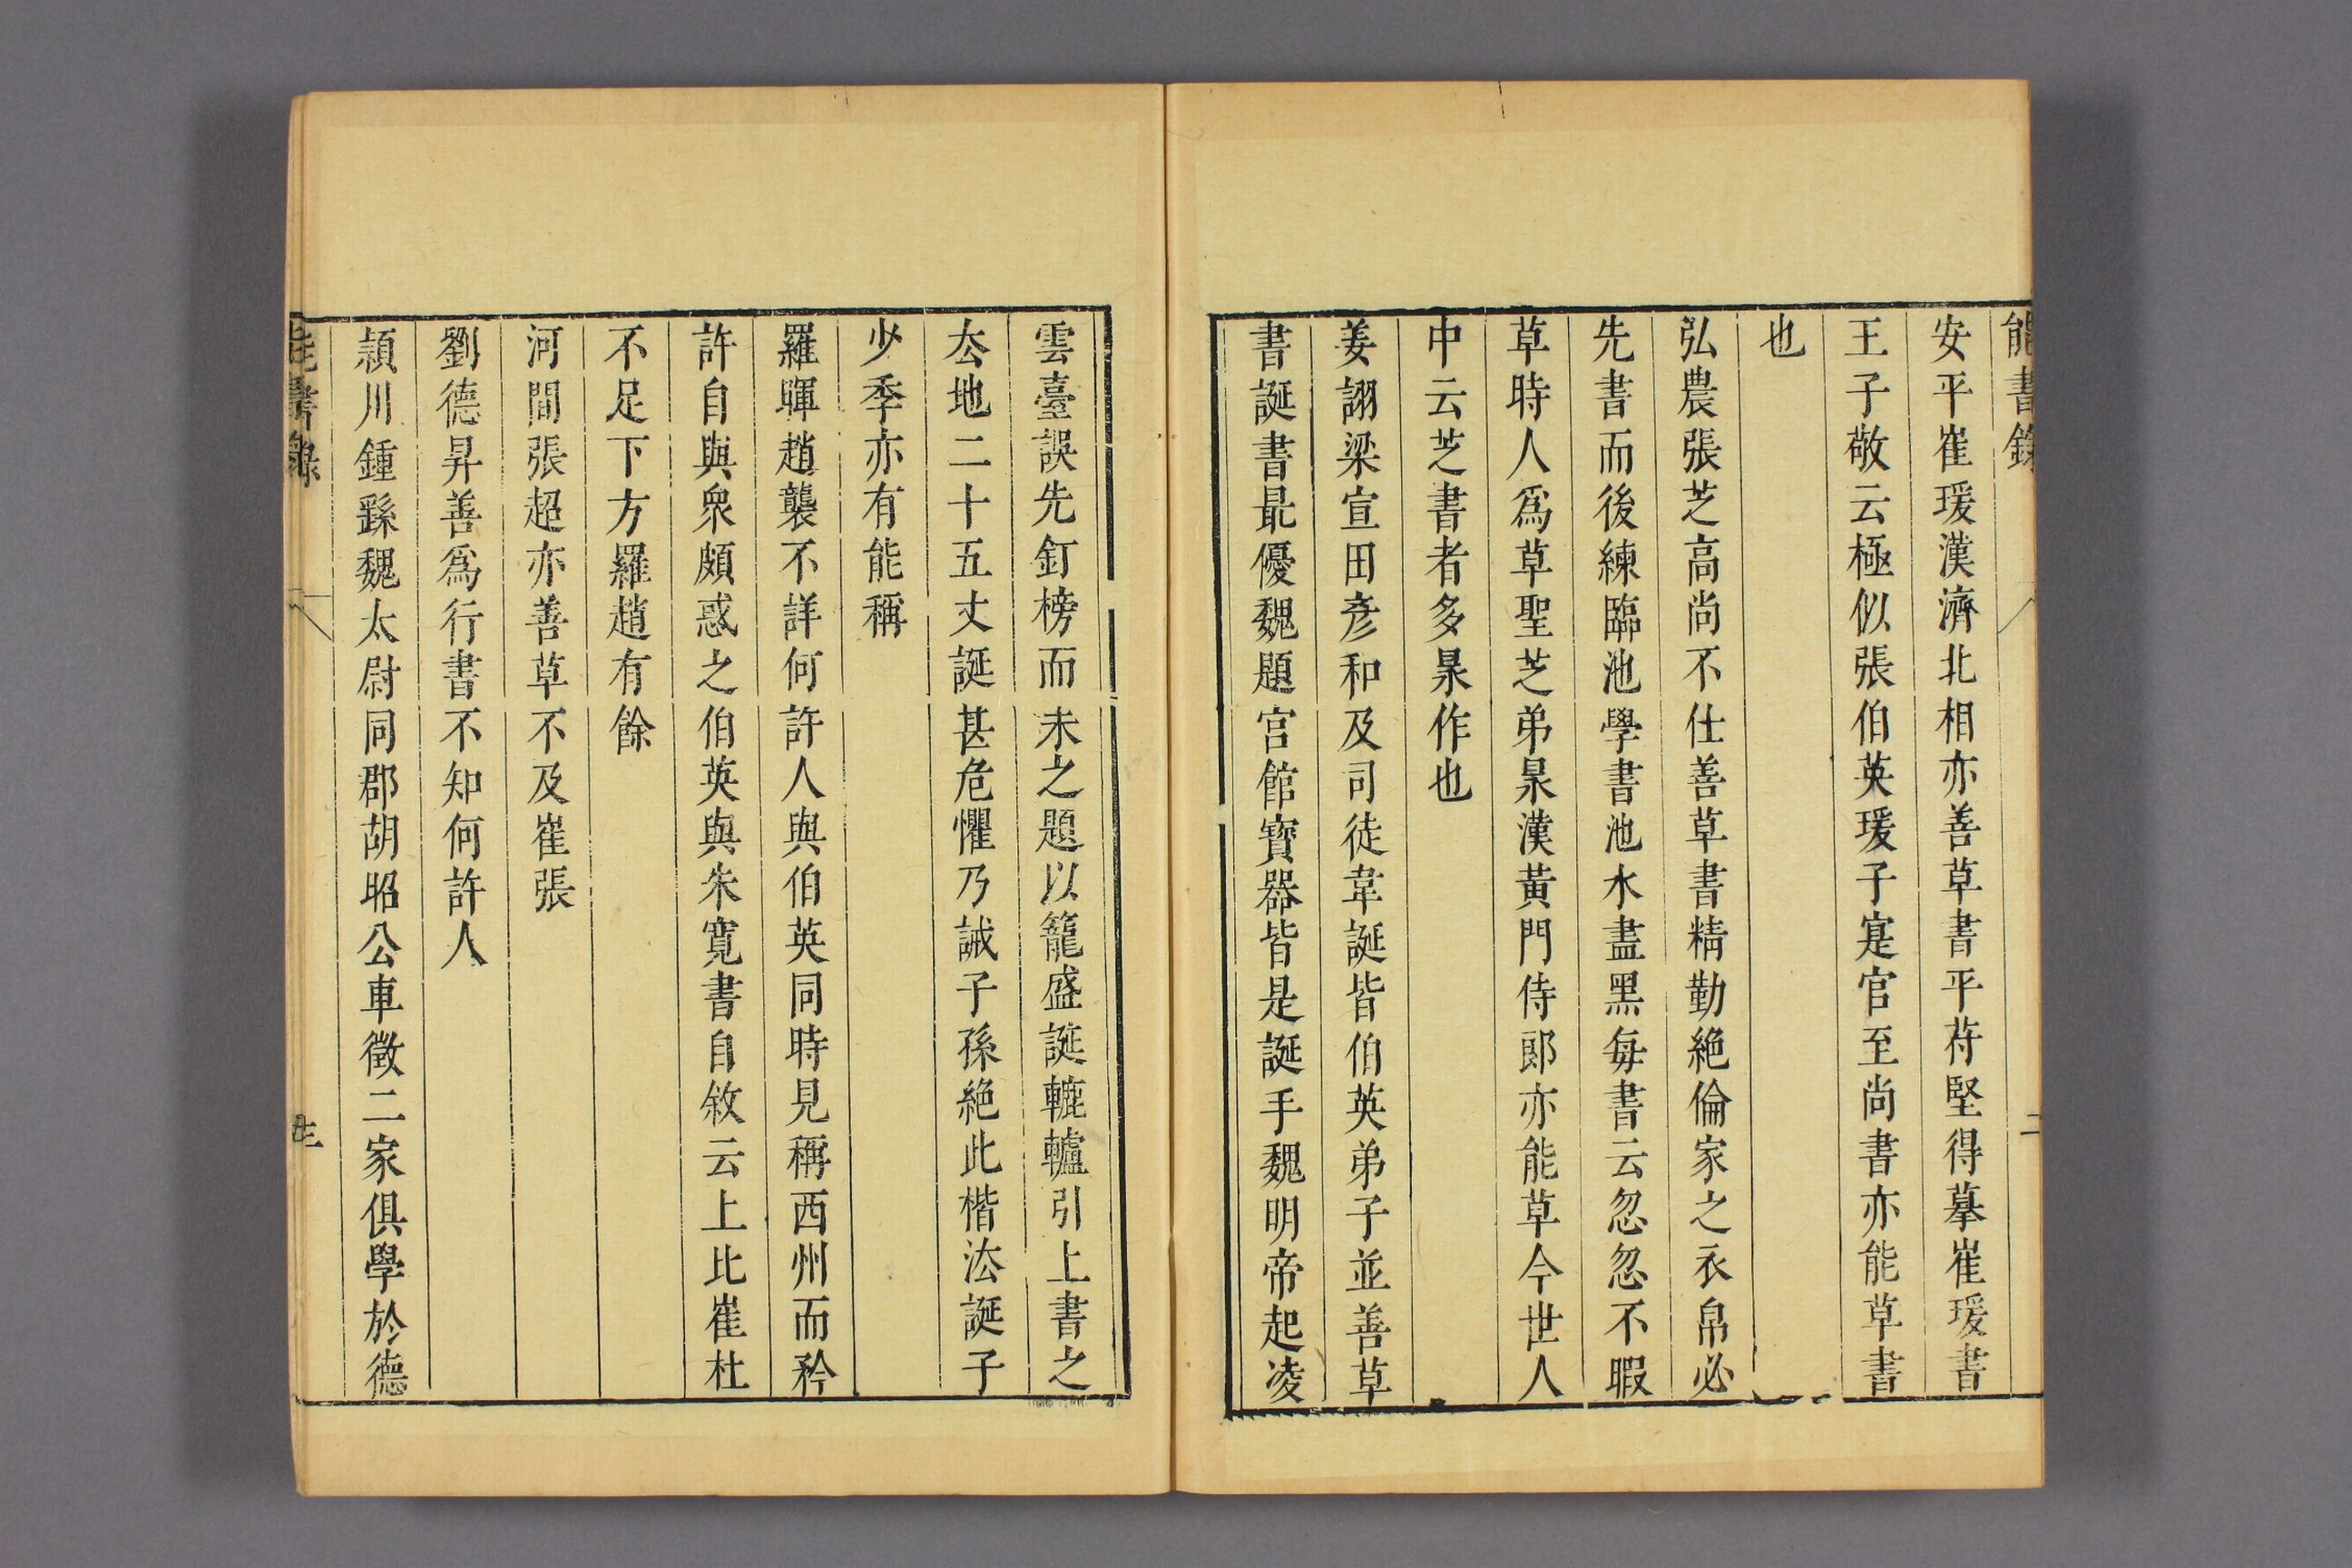 能書錄
二
安平崔瑗漢濟北相亦善草書平苻堅得摹崔瑗書
王子敬云極似張伯英瑗子寔官至尚書亦能草書
也
弘農張芝高尚不仕善草書精勤絶倫家之衣帛必
先書而後練臨池學書池水盡黑每書云忽忽不暇
草時人爲草聖芝弟昊漢黃門侍郎亦能草今世人
中云芝書者多昊作也
姜詡梁宣田彥和及司徒韋誕皆伯英弟子並善草
書誕書最優魏題宮館寶器皆是誕手魏明帝起凌
雲臺誤先釘榜而未之題以籠盛誕轆轤引上書之
厺地二十五丈誕甚危懼乃誡子孫絶此楷法誕子
少季亦有能稱
羅暉趙襲不詳何許人與伯英同時見稱西州而矜
許自與衆頗惑之伯英與朱寬書自敘云上比崔杜
不足下方羅趙有餘
河間張超亦善草不及崔張
劉德昇善爲行書不知何許人
潁川鍾繇魏太尉同郡胡昭公車徵二家俱學於德
能書錄